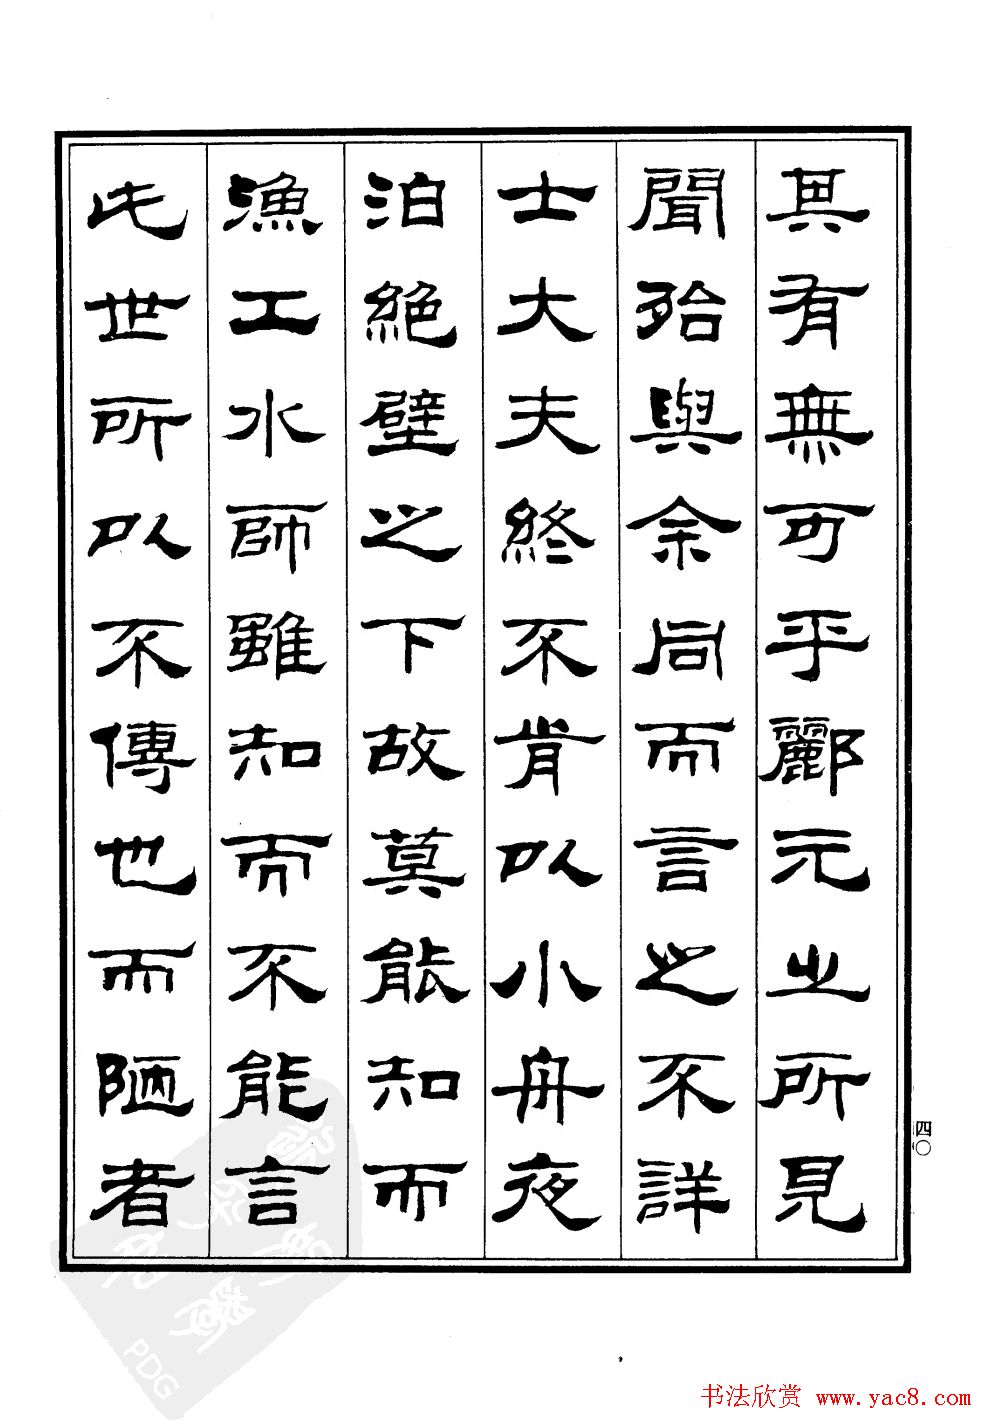 其有無可乎酈元之所見
聞殆與余同而言之不詳
士大夫終不肯以小舟夜
泊絕壁之下故莫能知而
漁工水師雖知而不能言
此世所以不傳也而陋者
四〇
PDG
书法欣赏 www.yac8.com